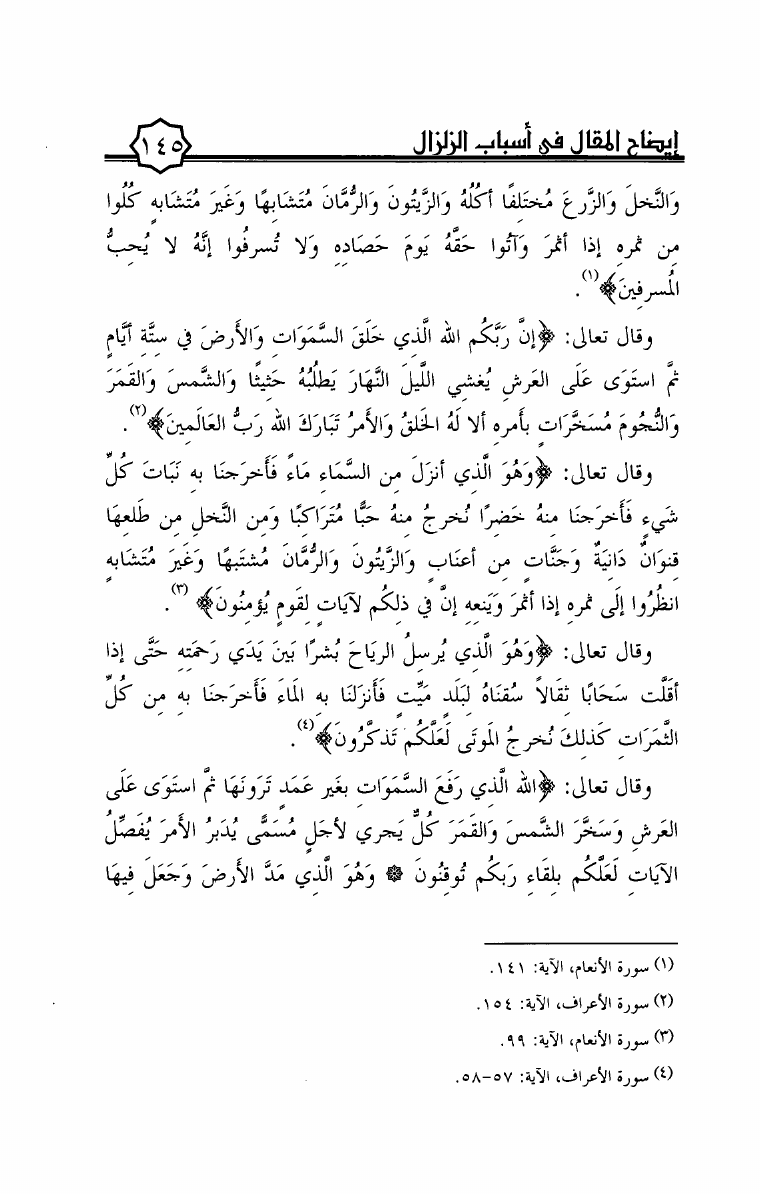 إيضاح المقال في أسباب الزلزال
١٤٥
وَالنَّخلَ وَالزَّرعَ مُختَلفًا أكُلُهُ وَالزَّيتُونَ وَالرُّمَّانَ مُتَشَابهًا وَغَيرَ مُتَشَابهٍ كُلُوا
من ثمره إذا أثمرَ وَآتُوا حَقَّهُ يَومَ حَصَاده وَلا تُسرفُوا إنَّهُ لا يُحبُّ
المُسرفينَ﴾(١).
وقال تعالى: ﴿إنَّ رَبَّكُم الله الَّذي خَلَقَ السَّمَوَات وَالأَرضَ في ستَّة أيَّامٍ
ثمَّ استَوَى عَلَى العَرش يُغشي اللَّيلَ النَّهَارَ يَطلُبُهُ حَثيثًا وَالشَّمسَ وَالقَمَرَ
وَالنُّجُومَ مُسَخَّرَات بأَمره ألا لَهُ الخَلقُ وَالأَمرُ تَبَارَكَ الله رَبُّ العَالَمينَ﴾(٢).
وقال تعالى: ﴿وَهُوَ الَّذي أنزَلَ من السَّمَاء مَاءً فَأَخرَجنَا به نَبَاتَ كُلِّ
شَيءٍ فَأَخرَجنَا منهُ خَضرًا نُخرجُ منهُ حَبًّا مُتَرَاكبًا وَمن النَّخل من طَلعهَا
قنوَانٌ دَانيَةٌ وَجَنَّات من أعنَاب وَالزَّيتُونَ وَالرُّمَّانَ مُشتَبهًا وَغَيرَ مُتَشَابه
انظُرُوا إلَى ثمره إذا أثمرَ وَيَنعه إنَّ في ذلكُم لآيَات لقَوم يُؤمنُونَ﴾ (٣).
وقال تعالى: ﴿وَهُوَ الَّذي يُرسلُ الريَاحَ بُشرًا بَينَ يَدَي رَحمَته حَتَّى إذا
أقَلَّت سَحَابًا ثقَالاً سُقنَاهُ لبَلَدٍ مَيِّتٍ فَأَنزَلنَا به المَاءَ فَأَخرَجنَا به من كُلِّ
الثَّمَرَات كَذلكَ نُخرجُ المَوتَى لَعَلَّكُم تَذكَّرُونَ﴾(٤).
وقال تعالى: ﴿الله الَّذي رَفَعَ السَّمَوَات بغَير عَمَدٍ تَرَونَهَا ثمَّ استَوَى عَلَى
العَرش وَسَخَّرَ الشَّمسَ وَالقَمَرَ كُلٌّ يَجري لأَجَلٍ مُسَمًّى يُدَبرُ الأَمرَ يُفَصِّلُ
الآيَات لَعَلَّكُم بلقَاء رَبكُم تُوقنُونَ ۞ وَهُوَ الَّذي مَدَّ الأَرضَ وَجَعَلَ فيهَا
(١) سورة الأنعام، الآية: ١٤١.
(٢) سورة الأعراف، الآية: ١٥٤.
(٣) سورة الأنعام، الآية: ٩٩.
(٤) سورة الأعراف، الآية: ٥٧-٥٨.